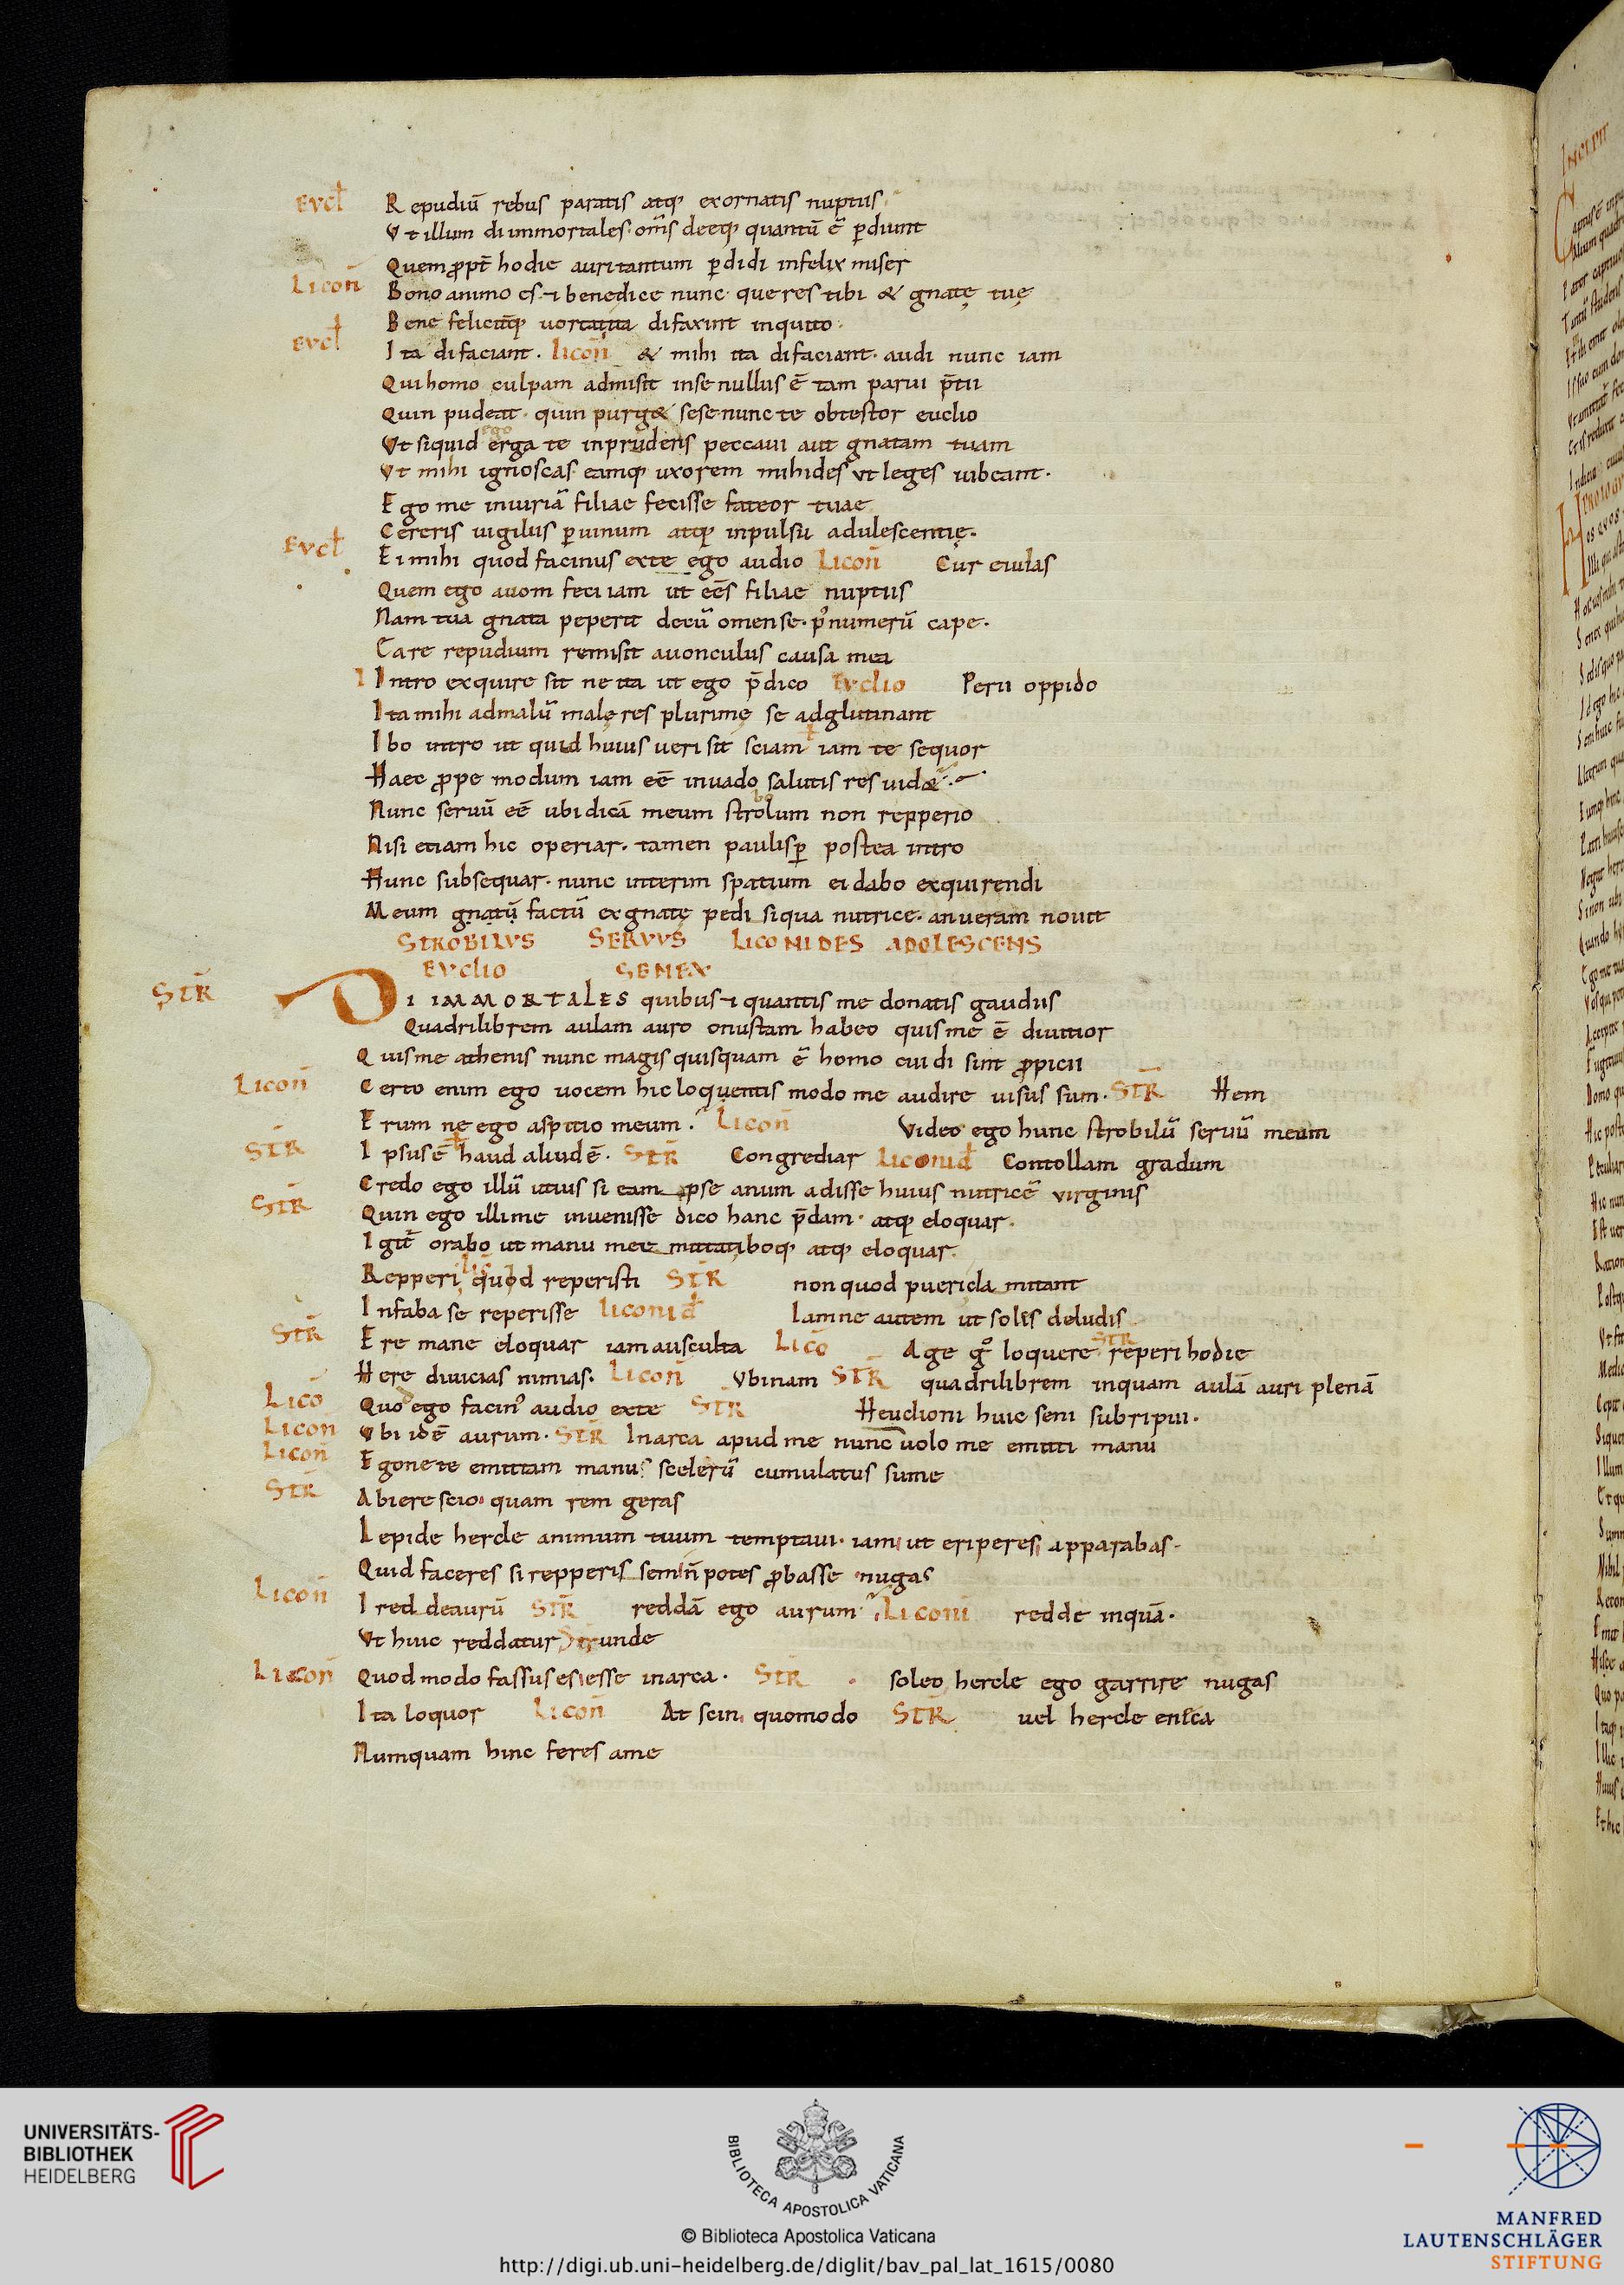 EVCL̄ Repudiū rebus paratis atq; exornatis nuptiis
Vt illum di immortales om̄s deeq; quantū ē ꝑdiunt
Quem ꝓpt̄ hodie auri tantum ꝑdidi infelix miser
LICON̄ Bono animo es ⁊ benedice nunc que res tibi & gnatę tuę
Bene feliciterq; uortat ita di faxint inquito
EVCL̄ Ita di faciant. LICON̄ & mihi ita di faciant. audi nunc iam
Qui homo culpam admisit in se nullus ē tam parui p̄tii
Quin pudeat. quin purg& sese nunc te obtestor euclio
Vt siquid ego erga te inprudens peccaui aut gnatam tuam
Vt mihi ignoscas eamq; uxorem mihi des ut leges iubeant.
Ego me iniuriā filiae fecisse fateor tuae
Cereris uigiliis ꝑ uinum atq; inpulsu adulescentię.
EVCL̄ Ei mihi quod facinus ex te ego audio LICON̄ Cur eiulas
Quem ego auom feci iam ut ees̄ filiae nuptiis
Nam tua gnata peperit decū o mense. p̕ numerū cape.
Ca re repudium remisit auonculus causa mea
I Intro exquire sit ne ita ut ego p̄dico EVCLIO Perii oppido
Ita mihi ad malū male res plurimę se adglutinant
Ibo intro ut quid huius ueri sit sciam iam te sequor
Haec ꝓpe modum iam eē in uado salutis res uid&
Nunc seruū eē ubi dicā meum strobolum non repperio
Nisi etiam hic operiar. tamen paulisꝑ postea intro
Hunc subsequar. nunc interim spatium ei dabo exquirendi
Meum gnatū factū ex gnatę pedisiqua nutrice. an ueram nouit
STROBILVS SERVVS LICONIDES ADOLESCENS
EVCLIO SENEX
STR̄ DI IMMORTALES quibus ⁊ quantis me donatis gaudiis
Quadrilibrem aulam auro onustam habeo quis me ē diuitior
Quis me athenis nunc magis quisquam ē homo cui di sint ꝓpicii
LICON̄ Certo enim ego uocem hic loquentis modo me audire uisus sum. STR̄ Hem
Erum ne ego aspitio meum. LICON̄ Video ego hunc strobilū seruū meum
STR̄ Ipsus ē haud aliud ē. STR̄ Congrediar LICONID̄ Contollam gradum
Credo ego illū utius si eam pse anum adisse huius nutricē virginis
STR̄ Quin ego illi me inuenisse dico hanc p̄dam. atq; eloquar.
Igit̄ orabo ut manu me mittat iboq; atq; eloquar.
Repperi quod reperisti STR̄ non quod puericla mitant
In faba se reperisse LICONID̄ Iamne autem ut soles deludis
STR̄ Ere mane eloquar iam ausculta LICO Age g̊ loquere STR reperi hodie
Here diuicias nimias. LICON̄ Vbinam STR̄ quadrilibrem inquam aulā auri plenā
LICO Quod ego facin᾽ audio ex te STR̄ Heuclioni huic seni subripui.
LICON̄ Vbi id ē aurum. STR̄ In arca apud me nunc uolo me emitti manu
LICON̄ Egone te emittam manus scelerū cumulatus sume
STR̄ Abi ere scio quam rem geras
Lepide hercle animum tuum temptaui. iam ut eriperes apparabas.
Quid faceres si repperis sem n̄ potes ꝓbasse nugas
LICON̄ I redde aurū STR̄ reddā ego aurum LICONI redde inquā.
Vt huic reddatur STR unde
LICON̄ Quod modo fassus es esse in arca. STR̄ soleo hercle ego garrire nugas
Ita loquor LICON̄ At scin quomodo STR̄ uel hercle enica
Numquam hinc feres a me
INCIPIT
UNIVERSITÄTS-
BIBLIOTHEK
HEIDELBERG
BIBLIOTECA APOSTOLICA VATICANA
© Biblioteca Apostolica Vaticana
http://digi.ub.uni-heidelberg.de/diglit/bav_pal_lat_1615/0080
MANFRED
LAUTENSCHLÄGER
STIFTUNG